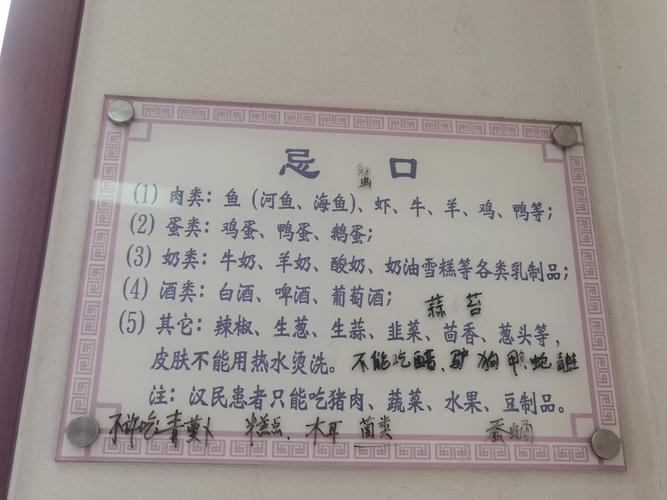 忌 口
蟹
(1) 肉类：鱼（河鱼、海鱼）、虾、牛、羊、鸡、鸭等；
(2) 蛋类：鸡蛋、鸭蛋、鹅蛋；
(3) 奶类：牛奶、羊奶、酸奶、奶油雪糕等各类乳制品；
(4) 酒类：白酒、啤酒、葡萄酒；
蒜苔
(5) 其它：辣椒、生葱、生蒜、韭菜、茴香、葱头等，
皮肤不能用热水烫洗。不能吃醋、驴 狗 蛇
注：汉民患者只能吃猪肉、蔬菜、水果、豆制品。
不许吃青萝卜 糕点、木耳 菌类 蚕蛹